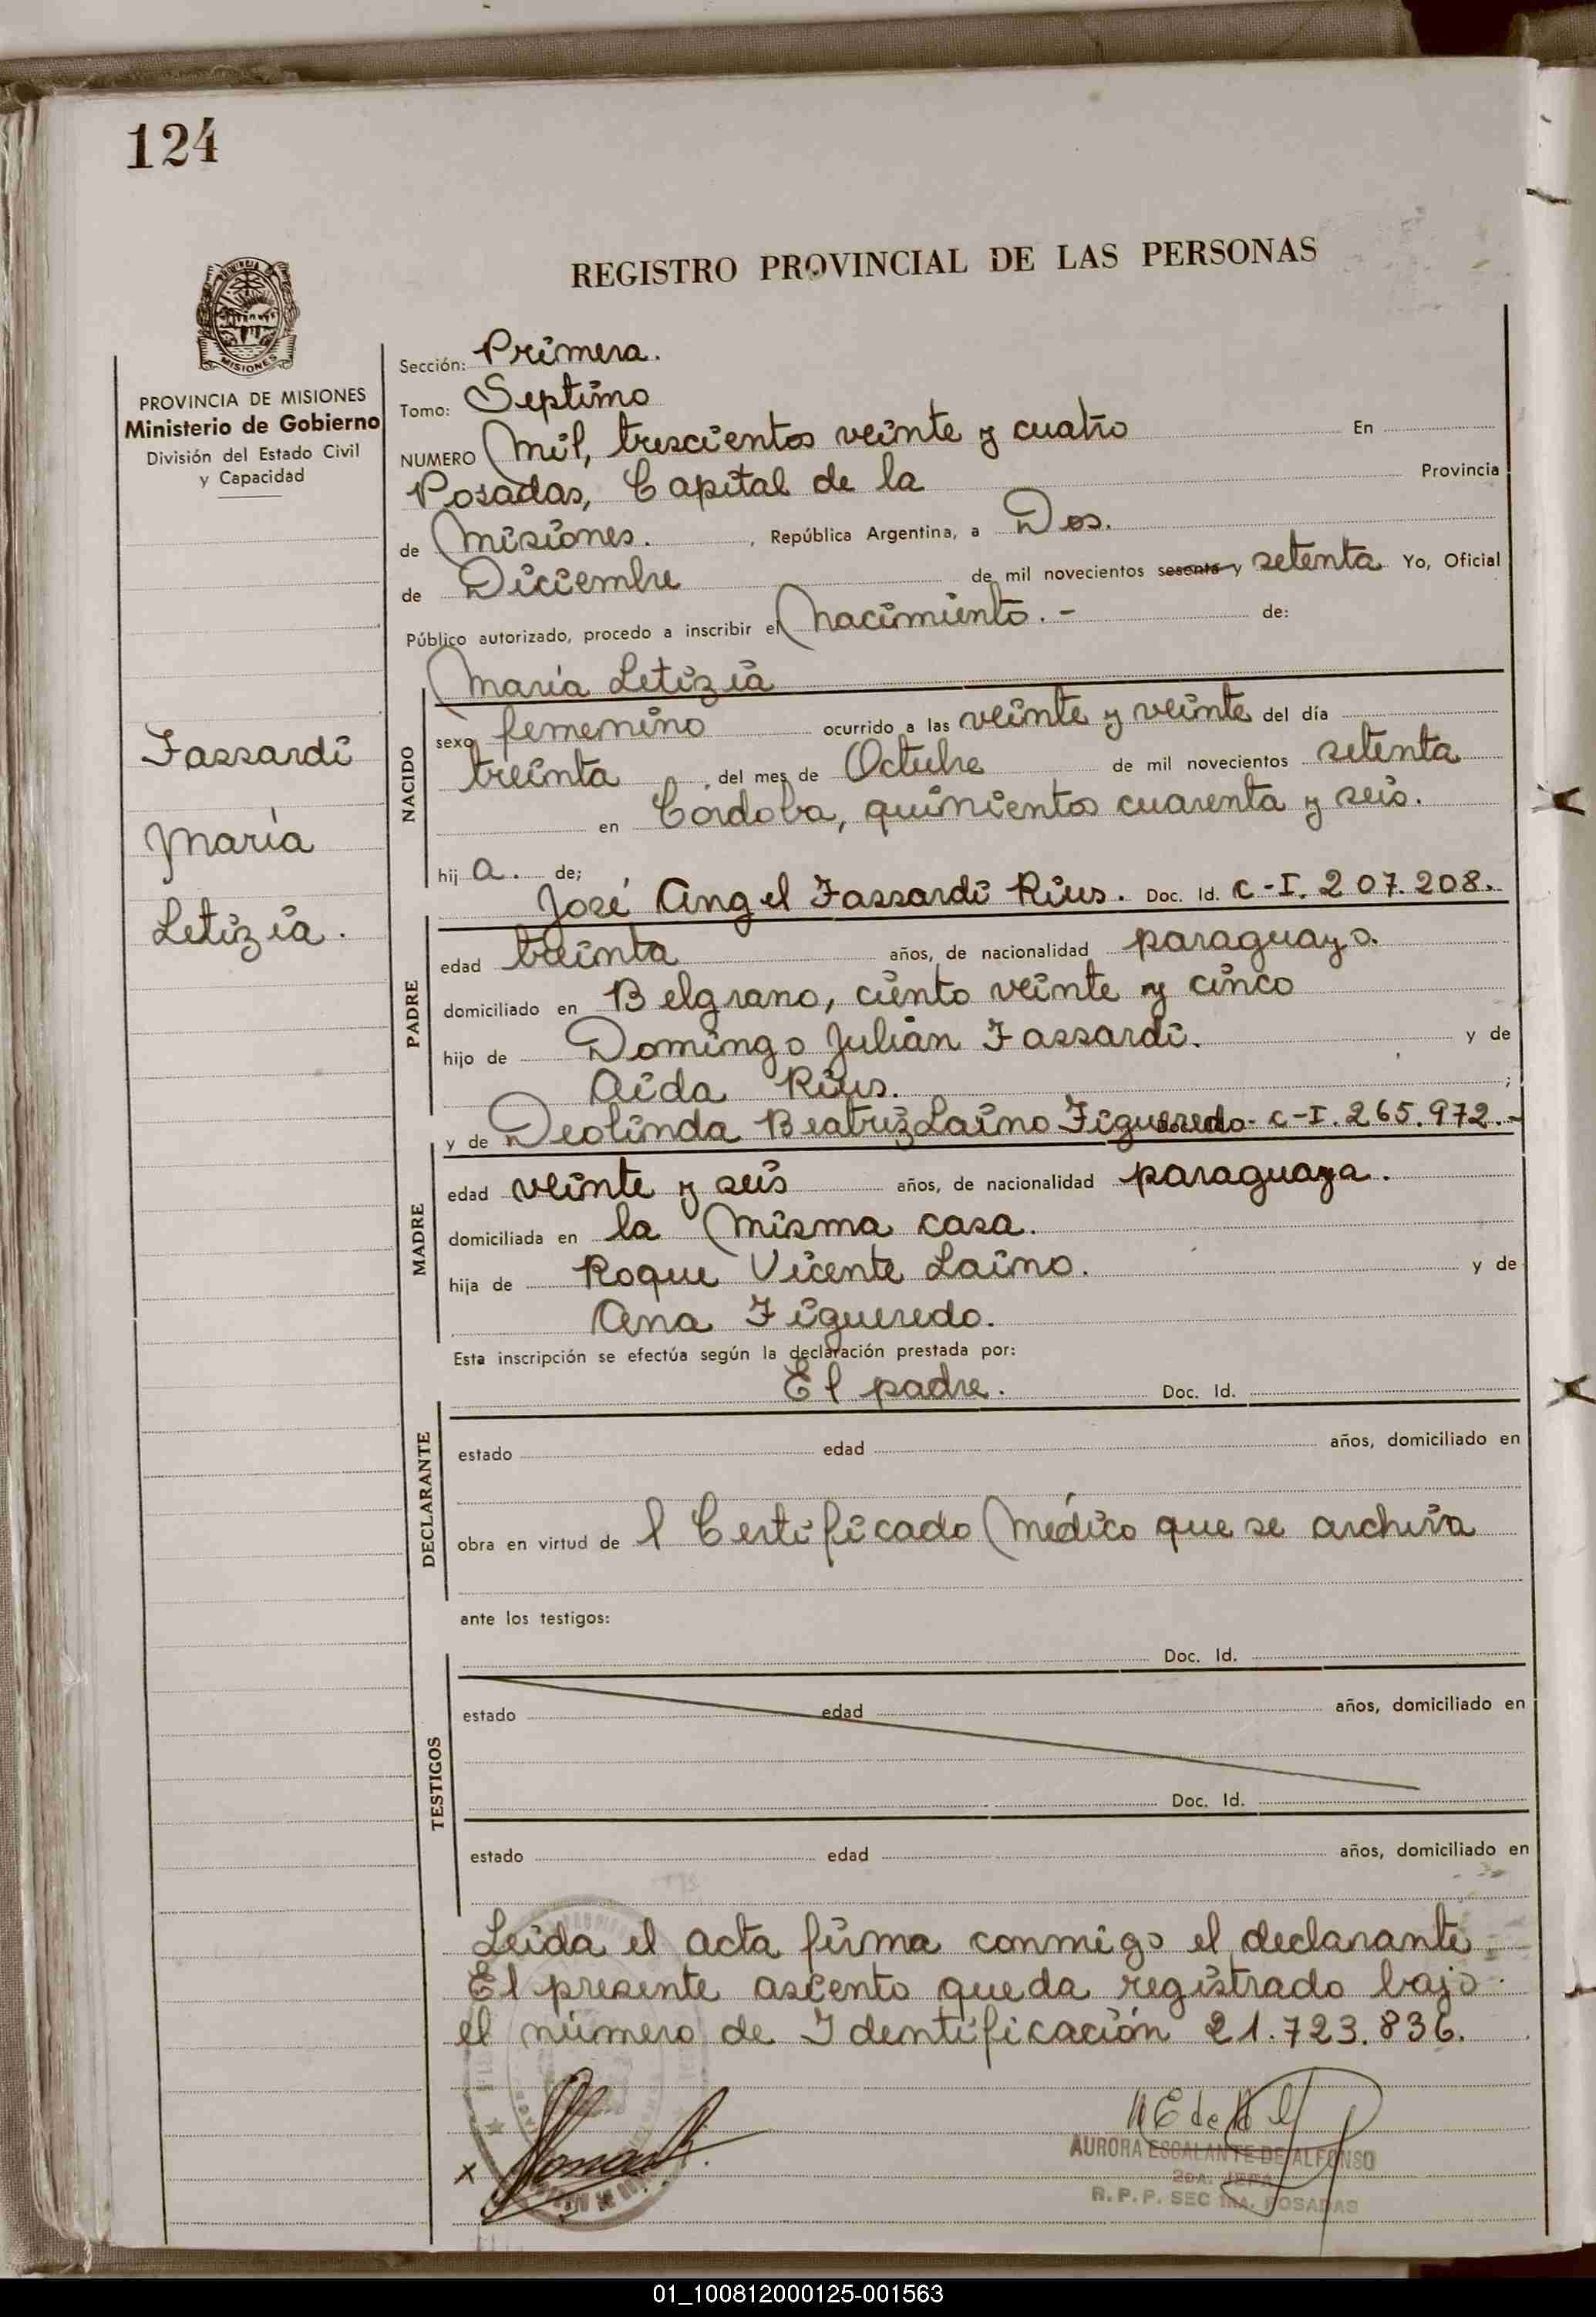 124
REGISTRO PROVINCIAL DE LAS PERSONAS
PROVINCIA DE MISIONES
Ministerio de Gobierno
División del Estado Civil
y Capacidad
Fassardi
María
Letizia.
Sección: Primera.
Tomo: Septimo
NUMERO Mil, trescientos veinte y cuatro En
Posadas, Capital de la Provincia
de Misiones. , República Argentina, a Dos.
de Diciembre de mil novecientos sesenta y setenta Yo, Oficial
Público autorizado, procedo a inscribir el Nacimiento. - de:
María Letizia
NACIDO
sexo femenino ocurrido a las veinte y veinte del día
treinta del mes de Octubre de mil novecientos setenta
en Córdoba, quinientos cuarenta y seis.
hij a. de;
José Angel Fassardi Rius. Doc. Id. C-I. 207.208.
PADRE
edad treinta años, de nacionalidad paraguayo.
domiciliado en Belgrano, ciento veinte y cinco
hijo de Domingo Julián Fassardi. y de
Aida Rius. ;
y de Deolinda Beatriz Laino Figueredo- C-I. 265.972.-
MADRE
edad veinte y seis años, de nacionalidad paraguaya.
domiciliada en la misma casa.
hija de Roque Vicente Laino. y de
Ana Figueredo.
Esta inscripción se efectúa según la declaración prestada por:
El padre. Doc. Id.
DECLARANTE
estado edad años, domiciliado en
obra en virtud de l Certificado Médico que se archiva
ante los testigos:
Doc. Id.
TESTIGOS
estado edad años, domiciliado en
Doc. Id.
estado edad años, domiciliado en
Leida el acta firma conmigo el declarante.
El presente asiento queda registrado bajo
el número de Identificación 21.723.836.
x
AURORA ESCALANTE DE ALFONSO
2DA. JEFA
R. P. P. SEC 1RA. POSADAS
01_100812000125-001563